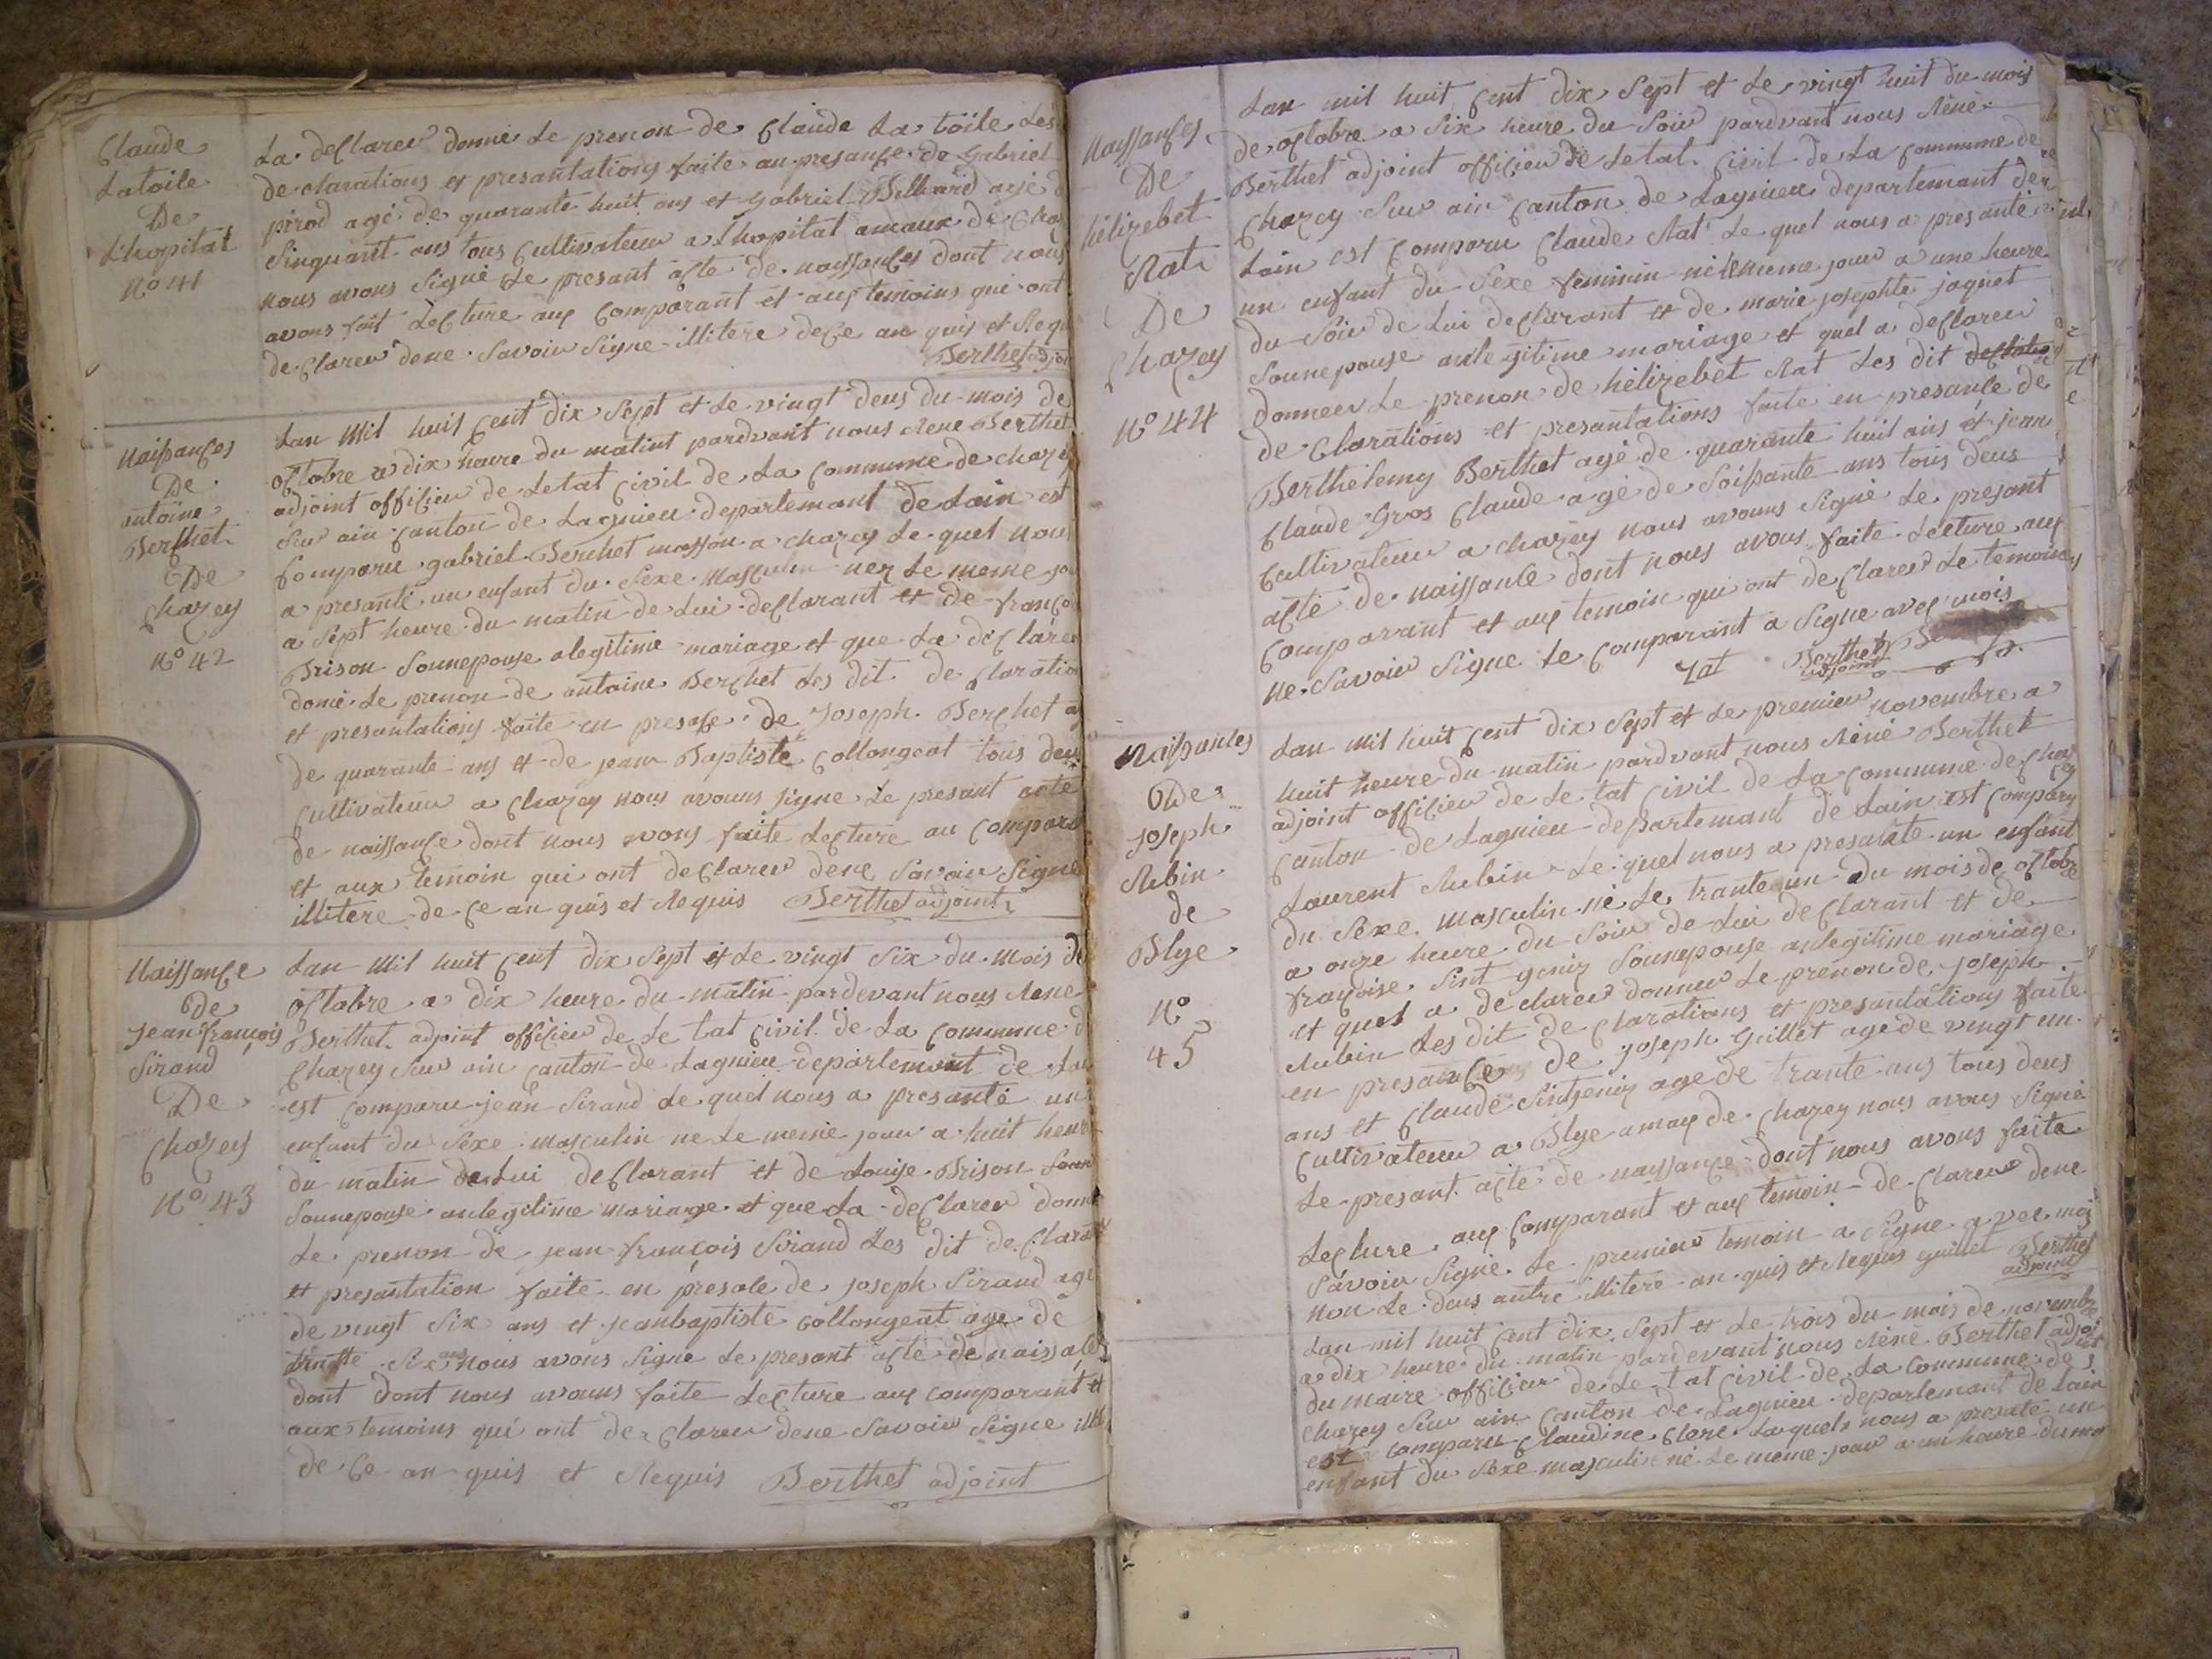 Claude
Latoile
De
Lhopital
No 41
La declarer donné Le prenon de Claude La toile Les
declarations et presantations faite au presanse de Gabriel
pirod agé de quarante huit ans et Gabriel Billiard agé
Sinquant ans tous Cultivateur a Lhopital amaux de Cha
nous avons Signé Le presant acte de naissances dont nous
avons fait Lecture aux Comparant et aux temoins qui ont
declarer dene Savoir Signe illitere dece an quis et Requ
Berthet adjoi
Naissances
De
antoine
Berchet
De
Chazey
No 42
Lan Mil huit Cent dix Sept et Le vingt deus du mois de
octobre a dix heure du matint pardvant nous Rene Berthet
adjoint officier de Letat Civil de La Commune de Chazey
Sur ain Canton de Lagnieu departemant de Lain est
Comparu gabriel Berchet masson a Chazey Le quel nous
a presanté un enfant du Sexe Masculin nez Le meme jou
a Sept heure du matin de Lui declarant et de franço
Brison Sounepouse a legitime mariage et que La declarer
donné Le prenon de antoine Berchet Les dit de claration
et presantations faite en presase de Joseph Berchet a
de quarante ans et de jean Baptiste Collongeat tous deus
Cultivateur a Chazey nous avouns signe Le presant acte
de naissanse dont nous avons faite Lecture au Compara
et aux temoin qui ont declarer dene Savoir Signe
illitere de Ce an quis et Requis Berthet adjoint
Naissance
De
Jean françois
Sirand
De
Chazey
No 43
Lan Mil huit Cent dix Sept et Le vingt Six du Mois de
octobre a dix heure du matin pardevant nous Rene
Berthet adjoint officier de Le tat Civil de La Commune d
Chazey Sur ain Canton de Lagnieu departemant de Lai
est Comparu jean Sirand Le quel nous a presanté un
enfant du Sexe masculin ne Le meme jour a huit heure
du matin de Lui declarant et de Louise Brison
Sounepouse anlegitime mariage et que La declarer donné
Le prenon de jean françois Sirand Les dit de Clarat
et presantation faite en presale de joseph Sirand age
de vingt Six ans et jeanbaptiste Collongeat age de
trante Six ans nous avons Signe Le presant acte de naissale
dont dont nous avouns faite Lecture aux Comparant et
aux temoins qui ont de Clarer dene Savoir Signe illit
de Ce an quis et Requis Berthet adjoint
Naissances
De
hélizebet
Rat
De
Chazey
No 44
Lan mil huit Cent dix Sept et Le vingt huit du mois
de octobre a Six heure du Soir pardvant nous Réné
Berthet adjoint officier de Letat Civil de La Commune de
Chazey Sur ain Canton de Lagnieu departemant de
Lain est Comparu Claude Rat Le quel nous a presanté
un enfant du Sexe féminin né Le meme jour a une heure
du Soir de Lui declarant et de marie josephte jaquet
Sounepouse anlegitime mariage et quel a declarer
donneer Le prenon de hélizebet Rat Les dit
de Clarations et presantations faite en presanle de
Berthelemy Berthet agé de quarante huit ans et jean
Claude Gros Claude agé de Soissante ans tous deus
Cultivateur a Chazey nous avouns Signé Le presant
acte de naissanle dont nous avons faite Lecture aux
Comparant et aux temoin qui ont declarer Le temoin
ne Savoir Signe Le Comparant a Signe avec mois
Rat Berthet
adjoint
Naissanles
De
Joseph
Rubin
de
Blye
No
45
Lan Mil huit Cent dix Sept et Le premier novembre a
huit heure du matin pardvant nous Réné Berthet
adjoint officier de Le tat Civil de La Commune de Chazey
Canton de Lagnieu departemant de Lain est Comparu
Laurent Rubin Le quel nous a presanté un enfant
du Sexe Masculin né Le trante un du mois de octobre
a onze heure du Soir de Lui declarant et de
françoise Sint geniz Sounepouse anlegitime mariage
et quel a declarer donner Le prenon de joseph
Rubin Les dit de Clarations et presantations faite
en presances de joseph Guillet age de vingt un
ans et Claude Sintgeniz age de trante ans tous deus
Cultivateur a Blye amax de Chazey nous avons Signé
Le presant acte de naissance dont nous avons faite
Lecture aux Comparant et aux temoin de Clarer dene
Savoir Signe Le premier temoin a Signe avec moi
non Le deus autre illitere an quis et Requis guillet Berthet
adjoint
Lan mil huit Cent dix Sept et Le trois du mois de novembre
a dix heure du matin pardevant nous Réné Berthet adjoint
du maire officier de Le tat Civil de La Commune de
Chazey Sur ain Canton de Lagnieu departemant de Lain
est Comparu Claudine Clere Laquele nous a presaté un
enfant du Sexe masculin né Le meme jour a un heure du ma